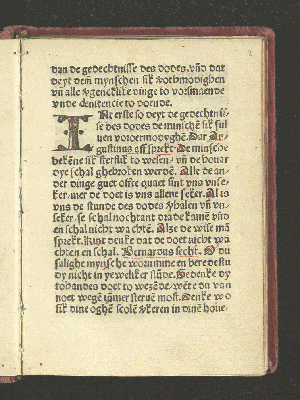 van de gedechtnisse des dodes. vnd dat
deyt dem mynschen sik vothmodighen
vn alle
vnde penitencie to donde.
INt erste so deyt de gedechtnis-
se des dodes de minsche sik sul
uen voroetmodyghe. Dar Au-
gustinus aff sprekt. De minsche
bekene sik sterflik to wesen. vn de houar
dye schal ghebroken werde. Alle de an
der dinge guet offte quaet sint vns vnse-
ker. mer de doet is vns allene seker. Al is
vns de stunde des dodes vn
seker. se schal nochtant drade kame vnd
en schal nicht wachte. Alze de wise ma
sprekt. Kint denke dat de doet nicht wach
ten en schal. Bernardus secht. O du
salighe mynsche vn berede stu
dy nicht in yeweliker stude. Bedenke dy
to handes doet to wezende. wete du van
noet wegen ymer sterue most. Denke wo
sik dine oghen scolen vkeren in dine houe